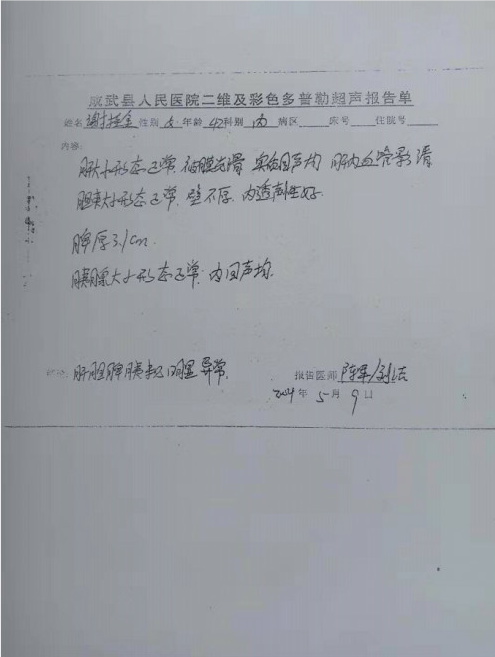 成武县人民医院二维及彩色多普勒超声报告单
姓名 谢 金 性别 女 年龄 42 科别 内 病区 床号 住院号
内容:
肝大小形态正常 被膜光滑 实质回声均 肝内血管影清
胆囊大小形态正常, 壁不厚, 内透声性好.
脾厚3.1cm.
胰腺大小形态正常, 内回声均.
肝胆脾胰 明显异常.
报告医师
年 5 月 9 日